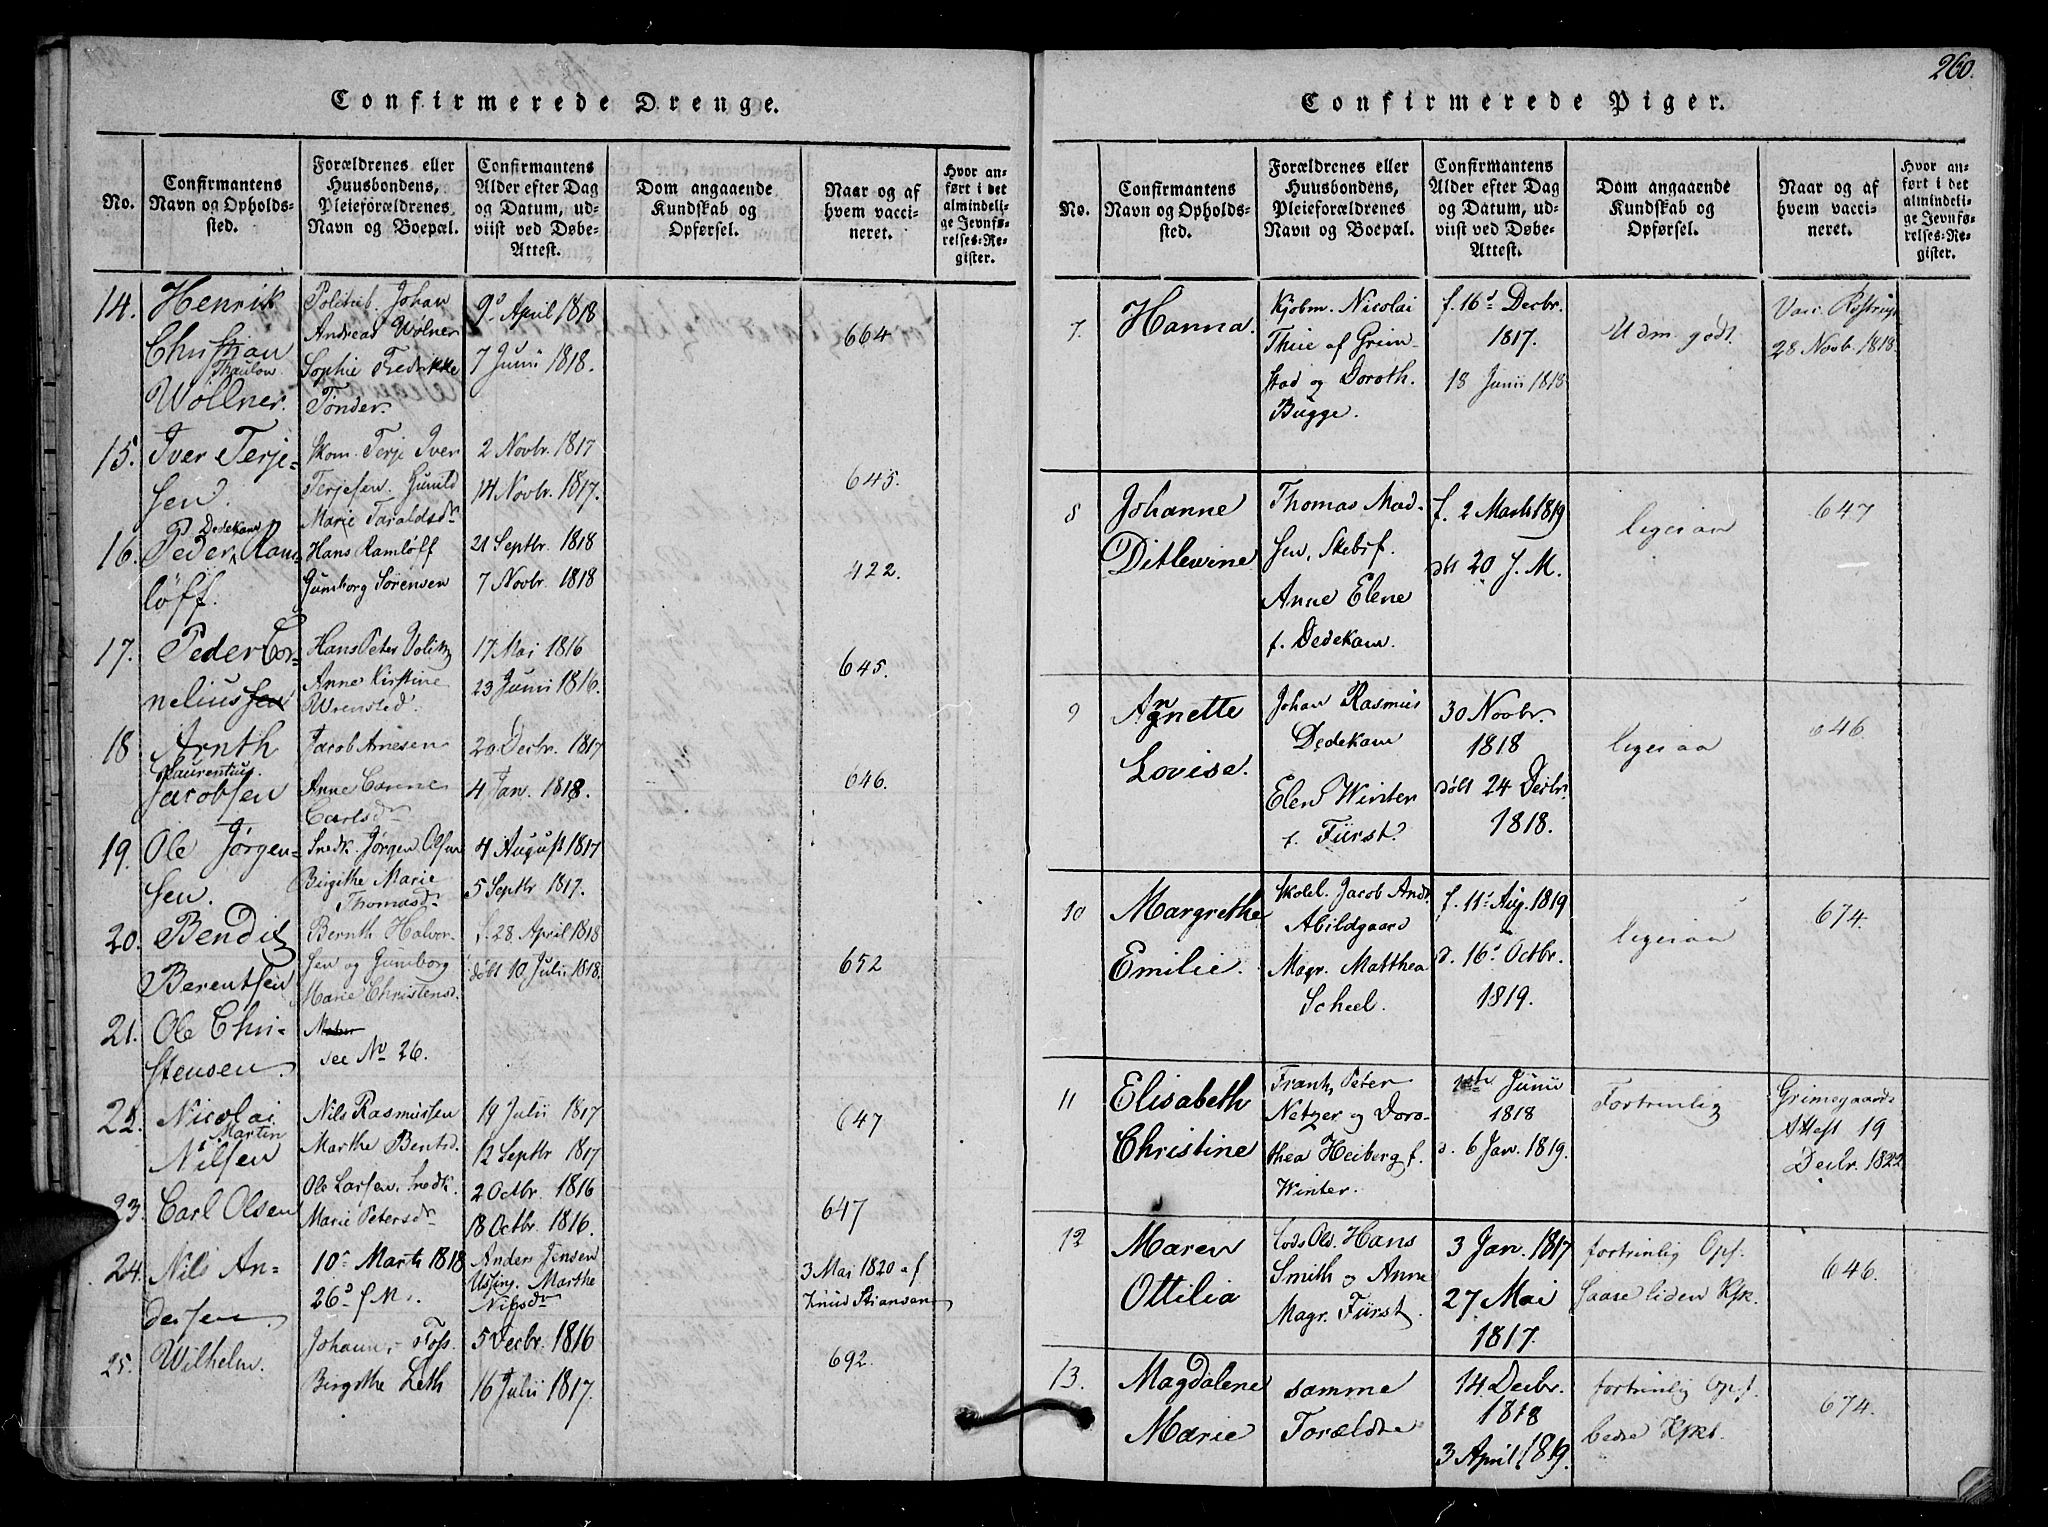 Confirmerede Drenge.
No.
Confirmantens
Navn og Opholds-
sted.
Forældrenes eller
Huusbondens,
Pleieforældrenes
Navn og Boepæl.
Confirmantens
Alder efter Dag
og Datum, ud-
viist ved Døbe-
Attest.
Dom angaaende
Kundskab og
Opførsel.
Naar og af
hvem vacci-
neret.
Hvor an-
ført i det
almindeli-
ge Jevnfø-
relses-Re-
gister.
14.
Henrik
Christian
Thaulow
Wöllner.
Johan
Andreas Wølner
Sophie Fredrikke
Tönder.
9d April 1818
7 Junii 1818.
664
15.
Iver Terje-
sen.
Skom. Terje Iver
Terjesen. Gunild
Marie Taraldsdr
2 Novbr. 1817
14 Novbr. 1817.
645.
16.
Dedekam
Peder Ram-
löff.
Hans Ramløff
Gunborg Sørensen
21 Septbr. 1818
7 Novbr. 1818
422.
17.
Peder Cor-
neliussen
Hans Peter
Anne Kirstine
Wrensted.
17 Mai 1816
23 Junii 1816.
645.
18
Arnth
Laurentius
Jacobsen
Jacob Arnesen
Anne
Carlsdr
20 Decbr. 1817
4 Jan. 1818.
646.
19.
Ole Jørgen-
sen.
Snedk. Jørgen Olsen
Birgithe Marie
Thomasdr
4 August 1817
5 Septbr 1817.
20.
Bendix
Berentsen
Bernth Halvor-
sen og Gunborg
Marie Christensd.
f. 28. April 1818
døbt 10 Julii 1818.
652
21.
Ole Chri-
stensen.
see No 26.
22.
Nicolai
Martin
Nilsen
Nils Rasmussen
Marthe Bentsd.
19 Julii 1817
12 Septbr 1817
647
23.
Carl Olsen
Ole Larsen, Snedk.
Marie Petersdr
2 Octbr. 1816
18 Octbr. 1816.
647
24.
Nils An-
dersen
10d Marts 1818
26d s. M.
Anders Jensen
Ussing. Marthe
Nilsdr
3 Mai 1820 af
Knud Stiansen
25.
Wilhelm.
Johannes Foss.
Birgithe Leth
5 Decbr. 1816
16 Julii 1817.
692.
260.
Confirmerede Piger.
No.
Confirmantens
Navn og Opholds-
sted.
Forældrenes eller
Huusbondens,
Pleieforældrenes
Navn og Boepæl.
Confirmantens
Alder efter Dag
og Datum, ud-
viist ved Døbe-
Attest.
Dom angaaende
Kundskab og
Opførsel.
Naar og af
hvem vacci-
neret.
Hvor an-
ført i det
almindeli-
ge Jevnfø-
relses-Re-
gister.
7.
Hanna.
Kjøbm. Nicolai
Thiie af Grim-
stad og Doroth.
Bugge.
f. 16d Decbr.
1817.
18 Junii 1818
Udm. godt.
Vacc.
28 Novb. 1818.
8
Johanne
Ditlevine
Thomas Mad-
sen, Skibsf.
Anne Elene
f. Dedekam.
f. 2 Marts 1819
dbt 20 s. M.
ligesaa
647
9
Annette
Lovise.
Johan Rasmus
Dedekam
Elen Winter
f. Fürst
30 Novbr.
1818
døbt 24 Decbr.
1818.
ligesaa
646.
10
Margrethe
Emilie.
Skolel. Jacob Andr.
Abildgaard
Magr. Matthea
Scheel.
f. 11d Aug. 1819
d. 16d Octbr.
1819.
ligesaa
674.
11
Elisabeth
Christine
Frantz Peter
Netzer og Doro-
thea Heiberg f.
Winter.
Junii
1818
d. 6 Jan. 1819.
Fortrinlig
Grimsgaards
Attest 19
Decbr. 1822
12
Maren
Ottilia
Lods Old. Hans
Smith og Anne
Magr. Fürst.
3 Jan. 1817
27 Mai
1817.
fortrinlig Opf.
saare liden Ksk.
646.
13.
Magdalene
Marie
samme
Forældre
14. Decbr.
1818
3 April 1819.
fortrinlig Opf.
bedre Kskb.
674.